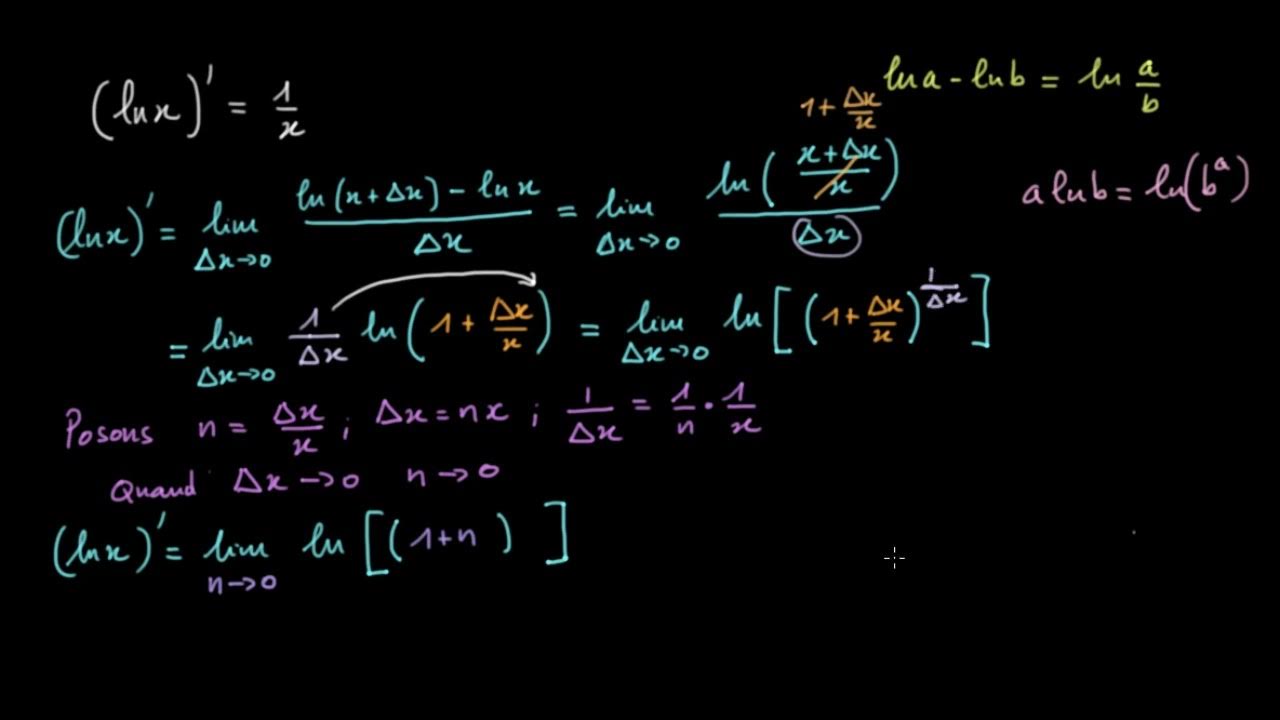 (ln x)' = 1/x
ln a - ln b = ln a/b
1 + Δx/x
a ln b = ln(b^a)
(ln x)' = lim Δx→0 (ln(x+Δx) - ln x)/Δx = lim Δx→0 ln((x+Δx)/x)/Δx
= lim Δx→0 1/Δx ln(1 + Δx/x) = lim Δx→0 ln[(1 + Δx/x)^(1/Δx)]
Posons n = Δx/x ; Δx = nx ; 1/Δx = 1/n · 1/x
Quand Δx→0 n→0
(ln x)' = lim n→0 ln[(1+n) ]